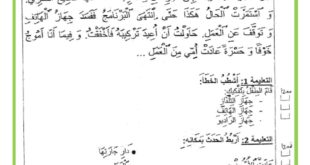 وَ اسْتَمَرَّتْ الْحَالُ هَكَذَا حَتَّى انْتَهَى الْبَرْنَامَجُ فَفَسَدَ جِهَازُ الْهَاتِفِ
وَ تَوَقَّفَ عَنِ الْعَمَلِ. حَاوَلْتُ أَنْ أُعِيدَ تَرْكِيبَهُ فَأَخْفَقْتُ، وَ فِيمَا أَنَا أَمُوجُ
خَوْفًا وَ حَسْرَةً عَادَتْ أُمِّي مِنَ الْعَمَلِ ...
التعليمة 1: أَشْطُبُ الخَطَأَ:
قَامَ الطِّفْلُ بِتَفْكِيكِ:
- جِهَازِ التِّلْفَازِ
- جِهَازِ الْهَاتِفِ
- جِهَازِ الرَّادْيُو
التعليمة 2: أَرْبِطُ الْحَدَثَ بِمَكَانِهِ:
• دَارِ جَارَتِهَا